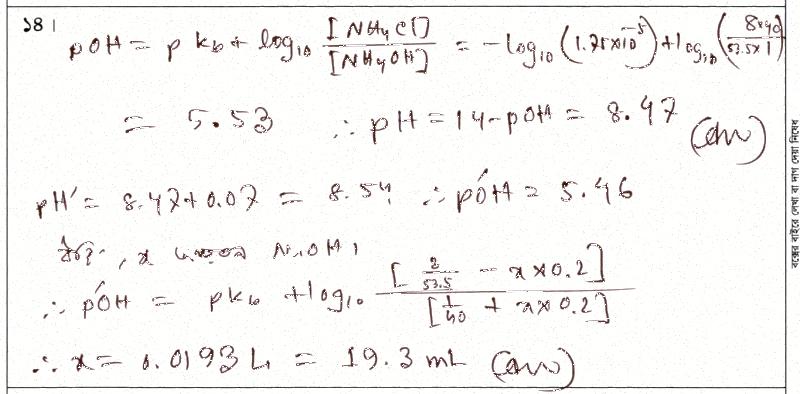 ১৪।
pOH = pkb + log₁₀ [NH₄Cl]/[NH₄OH] = -log₁₀(1.75×10⁻⁵) + log₁₀(8×40/53.5×1)
= 5.53 ∴ pH = 14-pOH = 8.47 (Ans)
pH′ = 8.47+0.07 = 8.54 ∴ pO′H = 5.46
ধরি, x NaOH।
∴ pO′H = pkb + log₁₀ [2/53.5 - x×0.2]/[1/40 + x×0.2]
∴ x = 0.0193 L = 19.3 mL (Ans)
বক্সের বাইরে লেখা বা দাগ দেয়া নিষেধ